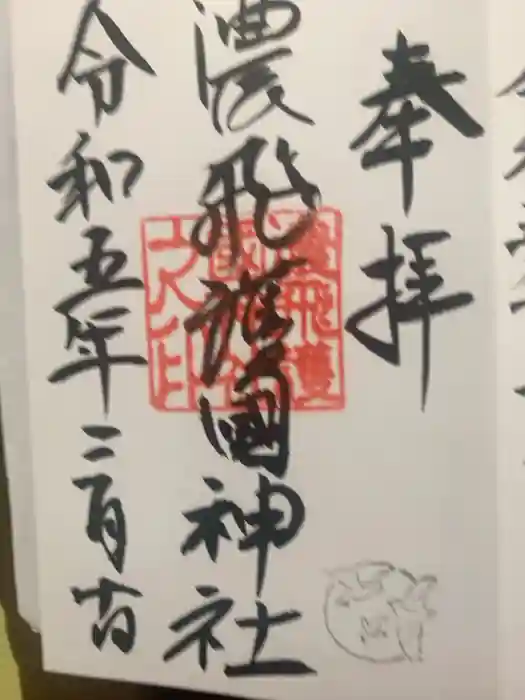 奉拝
濃飛護國神社
令和五年二月吉日